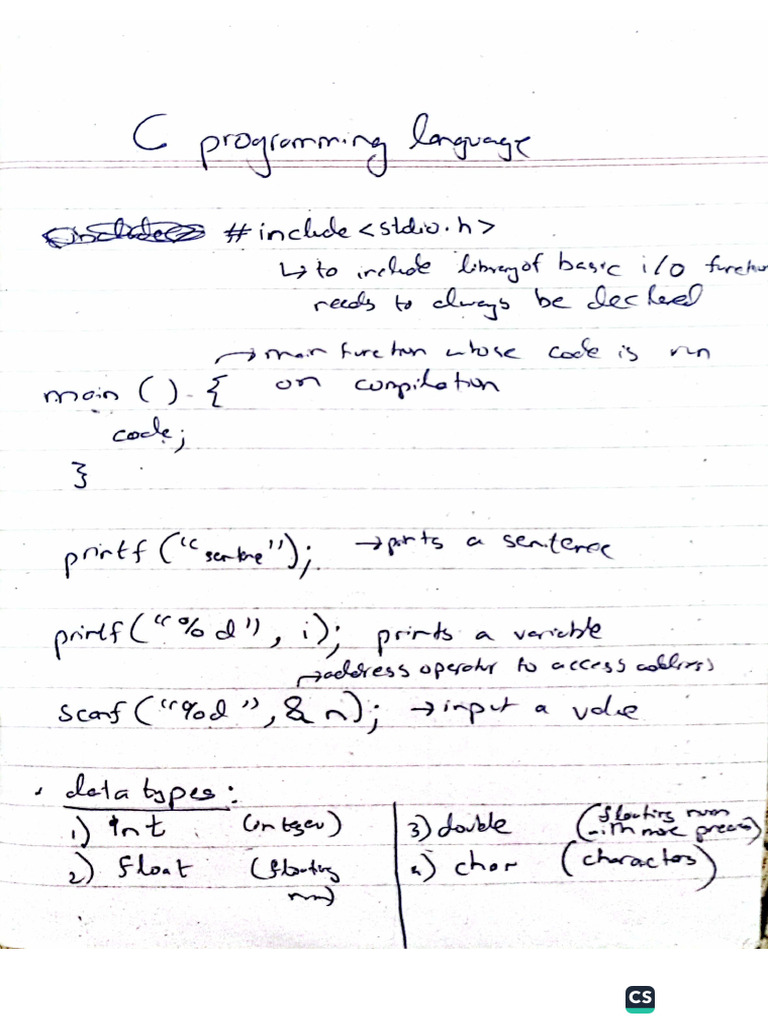 C programming language
#include <stdio.h>
↳ to include library of basic i/o function
needs to always be declared
→ main function whose code is run
main () { on compilation
code;
}
printf ("sentence"); → prints a sentence
printf ("%d", i); prints a variable
→ address operator to access address
scanf ("%d", & n); → input a value
• data types:
1) int (integer) 3) double (floating num with more precis)
2) float (floating num) 4) char (characters)
CS